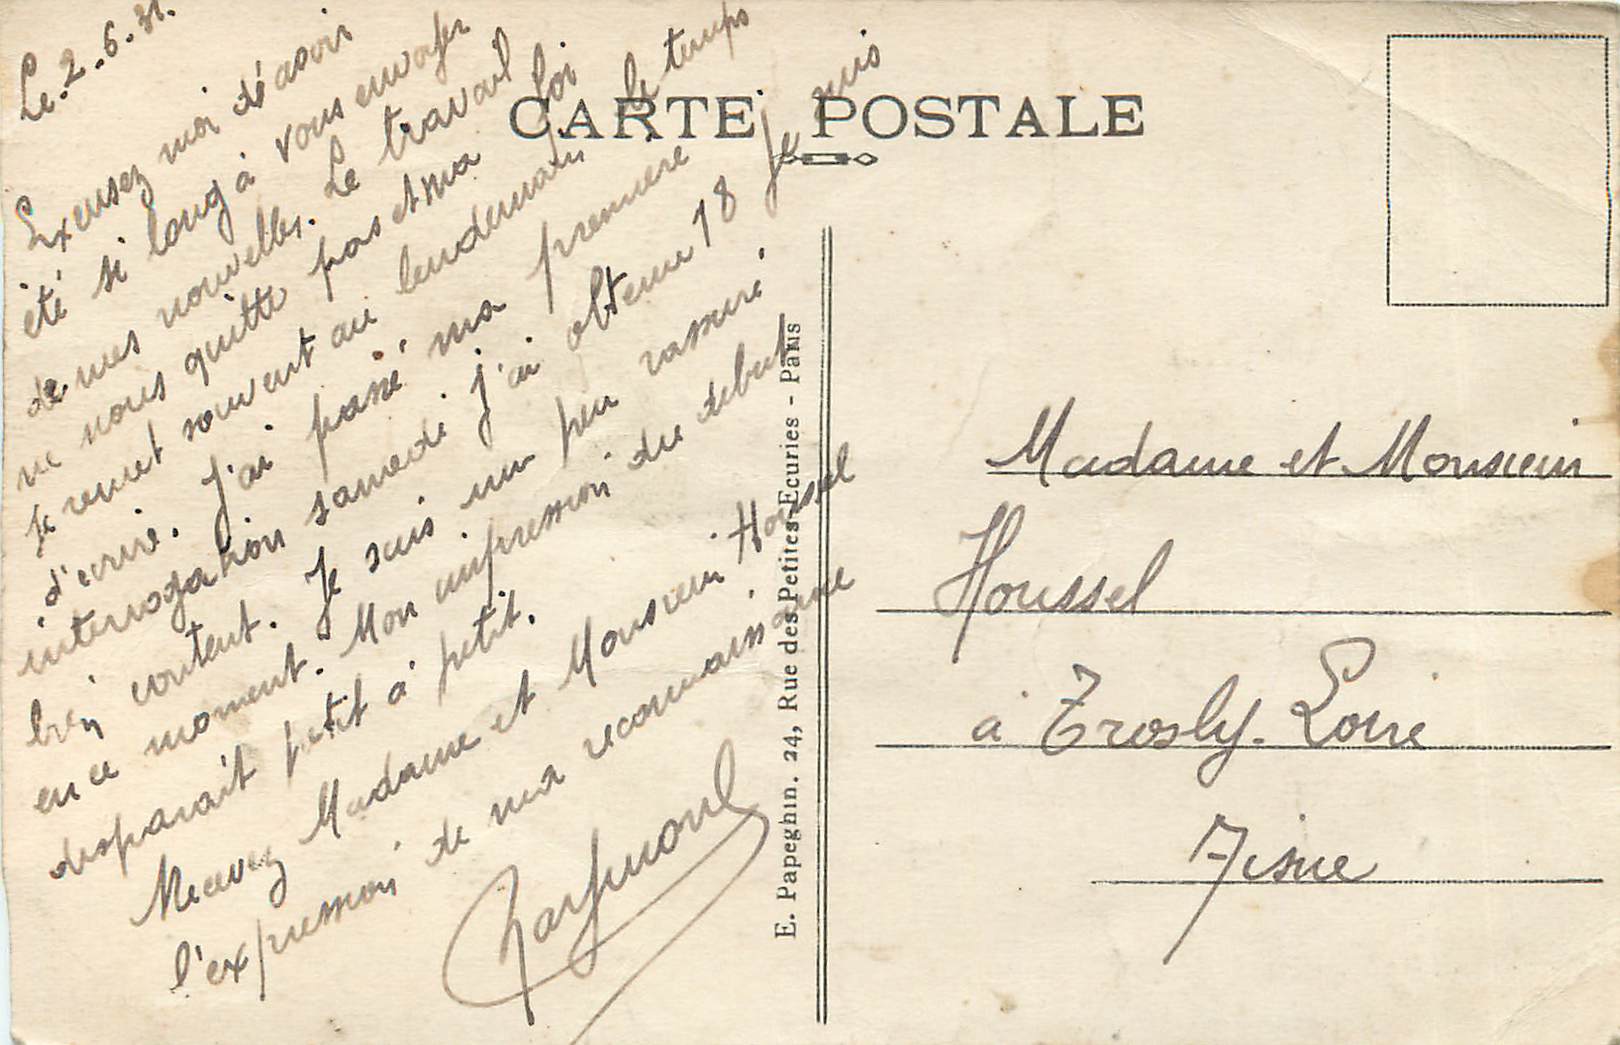 Le. 2. 6. 31.
Excusez moi d'avoir
été si long à vous envoyer
de mes nouvelles. Le travail
ne nous quitte pas et ma foi
je remet souvent au lendemain le temps
d'ecrire. J'ai passé ma première
interrogation samedi j'ai obtenu 18 je suis
bien content. Je suis un peu rassuré
en ce moment. Mon impression du debut
disparait petit à petit.
Recevez Madame et Monsieur Houssel
l'expression de ma reconnaissance
CARTE POSTALE
E. Papeghin. 24, Rue des Petites-Ecuries - Paris
Madame et Monsieur
Houssel
à Trosly-Loire
Aisne